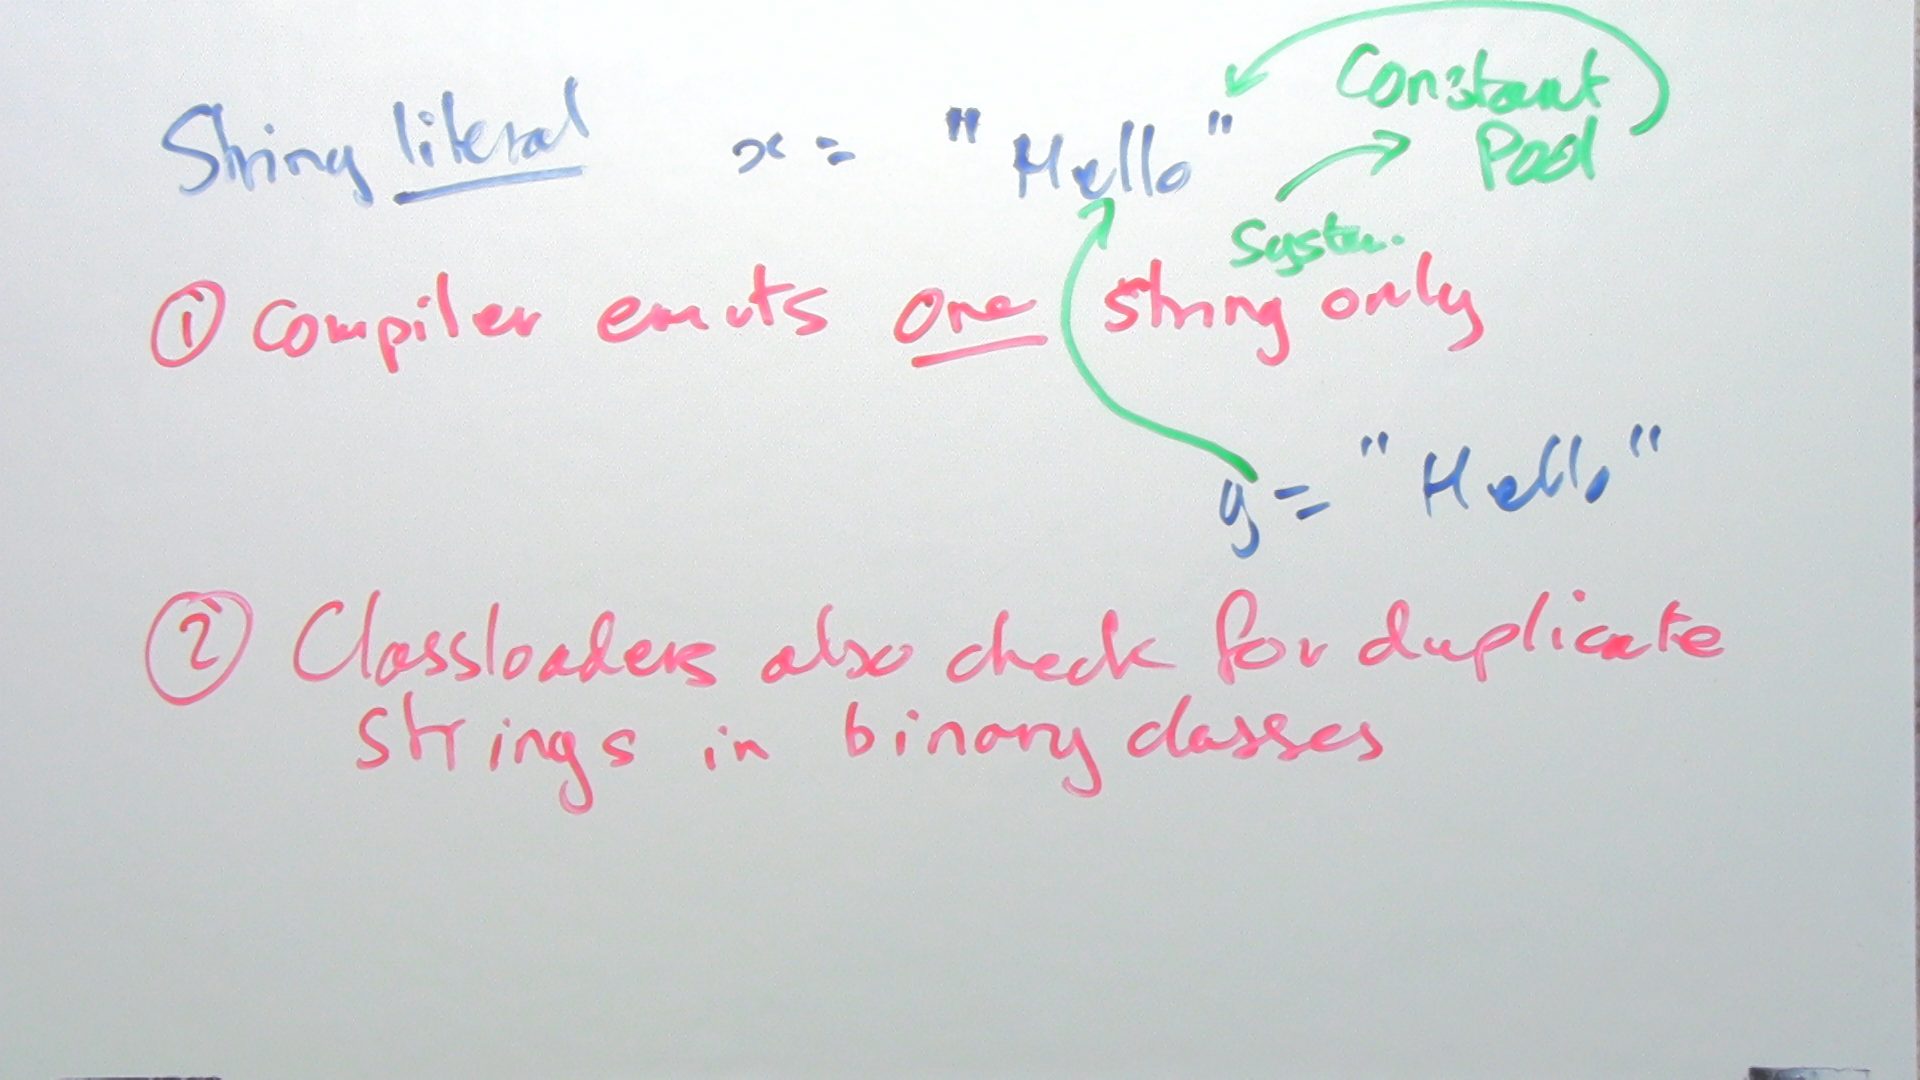 String literal x = "Hello"
Constant
Pool
System.
① Compiler emits one string only
y = "Hello"
② Classloaders also check for duplicate
strings in binary classes